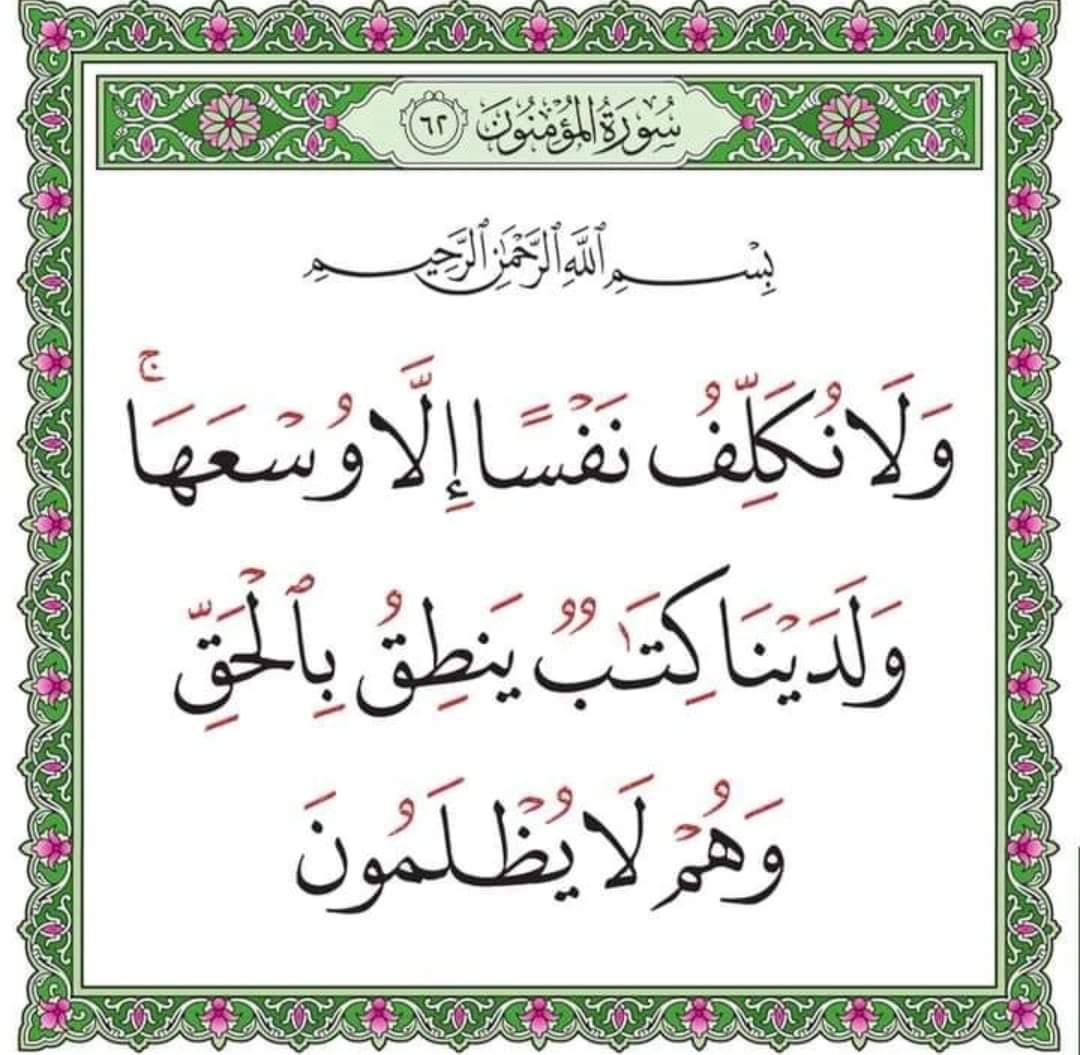 سُورَةُ المُؤْمِنُونَ ٦٢
بِسْمِ ٱللَّهِ ٱلرَّحْمَٰنِ ٱلرَّحِيمِ
وَلَا نُكَلِّفُ نَفْسًا إِلَّا وُسْعَهَا ۚ
وَلَدَيْنَا كِتَٰبٌ يَنطِقُ بِٱلْحَقِّ
وَهُمْ لَا يُظْلَمُونَ